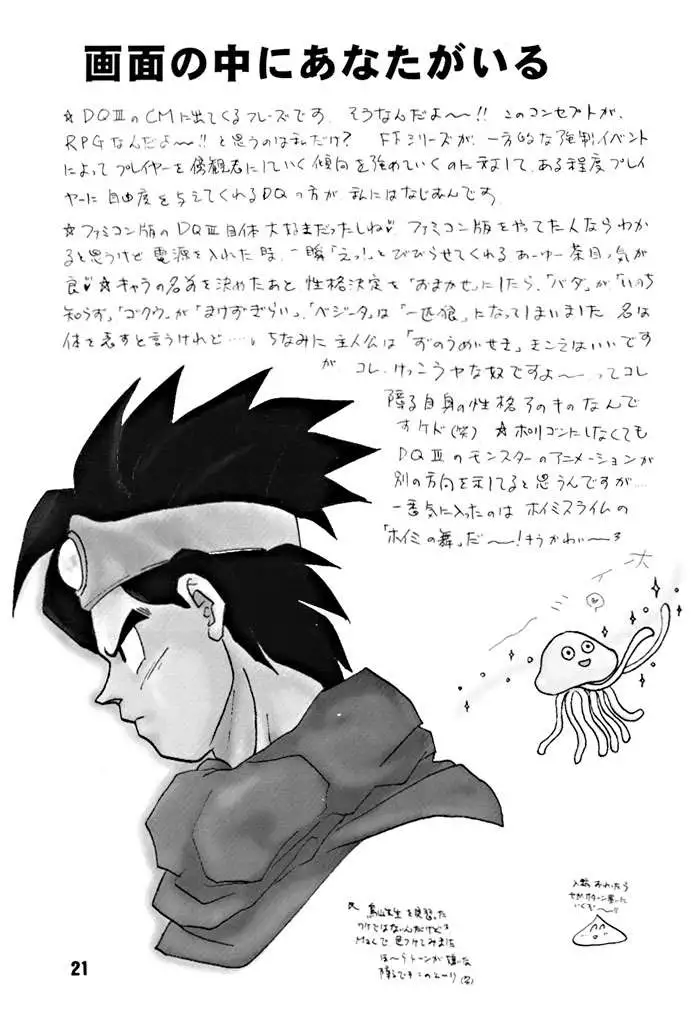 画面の中にあなたがいる
☆DQⅢのCMに出てくるフレーズです。そうなんだよ〜!! このコンセプトが、
RPGなんだよ〜!! と思うのは私だけ? FFシリーズが、一方的な強制イベント
によってプレイヤーを傍観者にしていく傾向を強めていくのに対して、ある程度プレイ
ヤーに自由度を与えてくれるDQの方が、私にはなじむんです。
☆ファミコン版のDQⅢ自体大好きだったしね♡ ファミコン版をやってた人ならわか
ると思うけど電源を入れた時、一瞬「えっ!」とびびらせてくれるあーゆー茶目っ気が
良♡☆キャラの名前を決めたあと性格決定を「おまかせ」にしたら、「バダ」が「いのち
知らず」「ゴクウ」が「まけずぎらい」、「ベジータ」は「一匹狼」になってしまいました 名は
体を表すと言うけれど……。ちなみに主人公は「ずのうめいせき」きこえはいいです
が、コレ、けっこうヤな奴ですよ〜ってコレ
障る自身の性格そのものなんで
すケド(笑) ☆ポリゴンにしなくても
DQⅢのモンスターのアニメーションが
別の方向を示してると思うんですが……
一番気に入ったのはホイミスライムの
「ホイミの舞」だ〜!
ホイミ
☆鳥山先生を
ワケではないんだけど
Macで色つけてみました
障るです このとーり(笑)
21